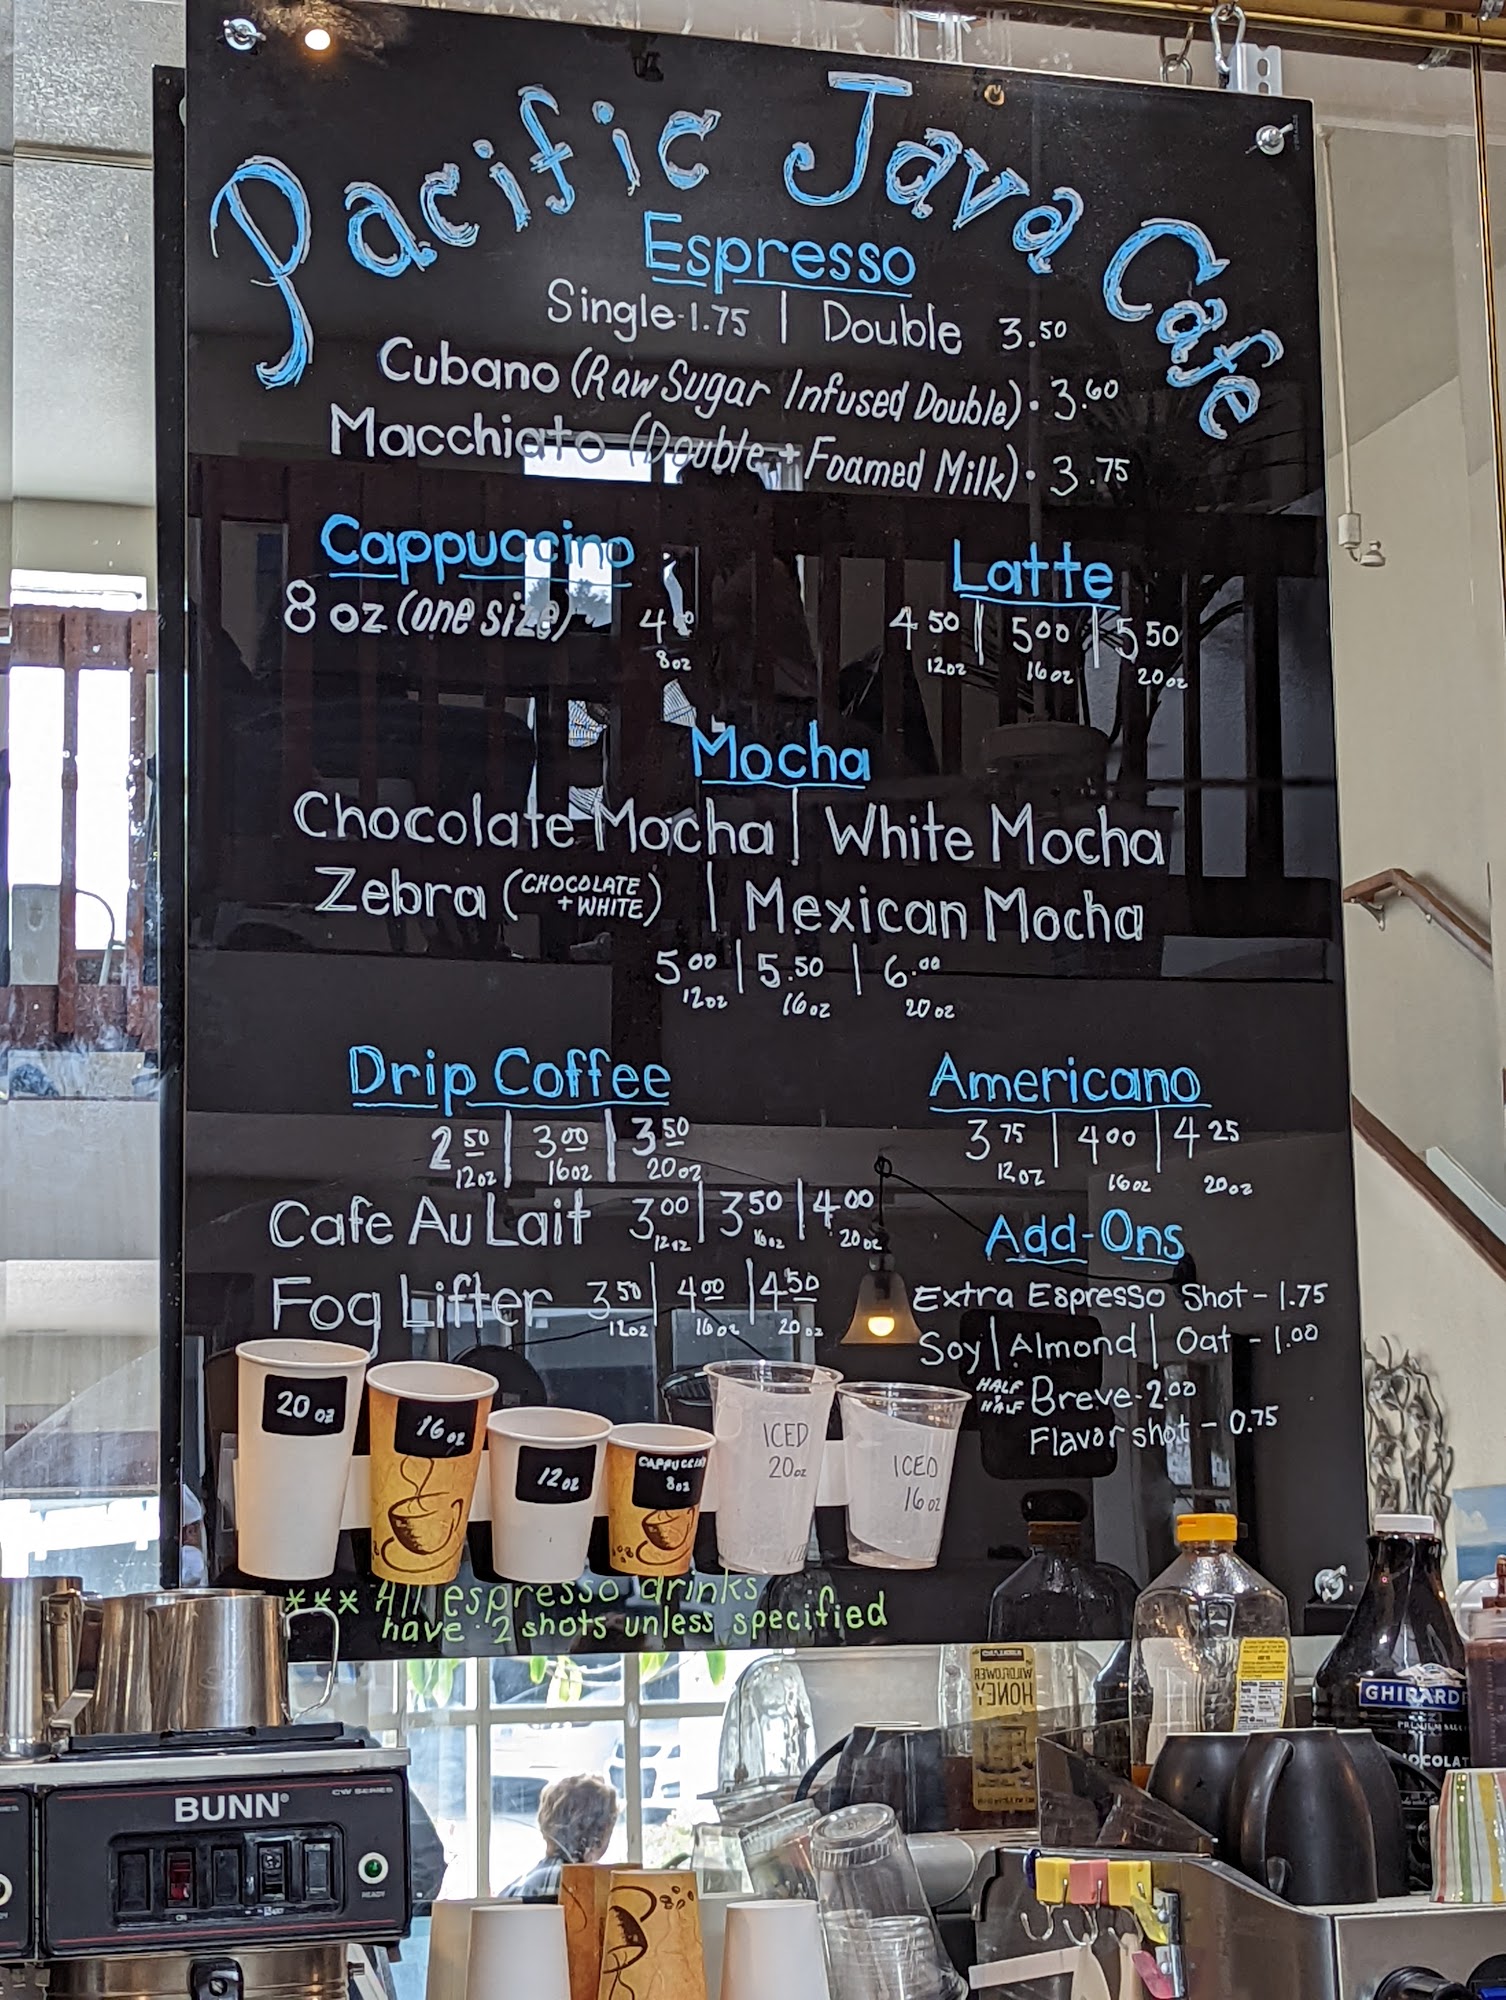 Pacific Java Cafe
Espresso
Single-1.75 | Double 3.50
Cubano (Raw Sugar Infused Double) · 3.60
Macchiato (Double + Foamed Milk) · 3.75
Cappuccino
8 oz (one size) 4
8oz
Latte
4 50 | 5 00 | 5 50
12oz 16oz 20oz
Mocha
Chocolate Mocha | White Mocha
Zebra (CHOCOLATE + WHITE) | Mexican Mocha
5 00 | 5.50 | 6.00
12oz 16oz 20oz
Drip Coffee
2 50 | 3 00 | 3 50
12oz 16oz 20oz
Cafe Au Lait 3 00 | 3 50 | 4 00
12oz 16oz 20oz
Fog Lifter 3 50 | 4 00 | 4 50
12oz 16oz 20oz
Americano
3 75 | 4 00 | 4 25
12oz 16oz 20oz
Add-Ons
Extra Espresso Shot - 1.75
Soy | Almond | Oat - 1.00
HALF HALF Breve - 2.00
Flavor shot - 0.75
20 oz
16 oz
12 oz
CAPPUCCINO
8oz
ICED
20oz
ICED
16 oz
*** All espresso drinks
have 2 shots unless specified
WILDFLOWER
HONEY
GHIRARD
BUNN®
CW SERIES
READY
ON